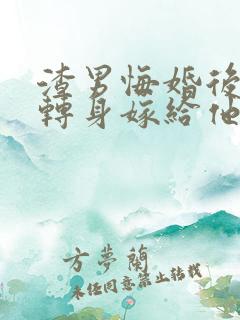 渣男悔婚後
轉身嫁給他
方夢蘭
未經同意禁止轉載